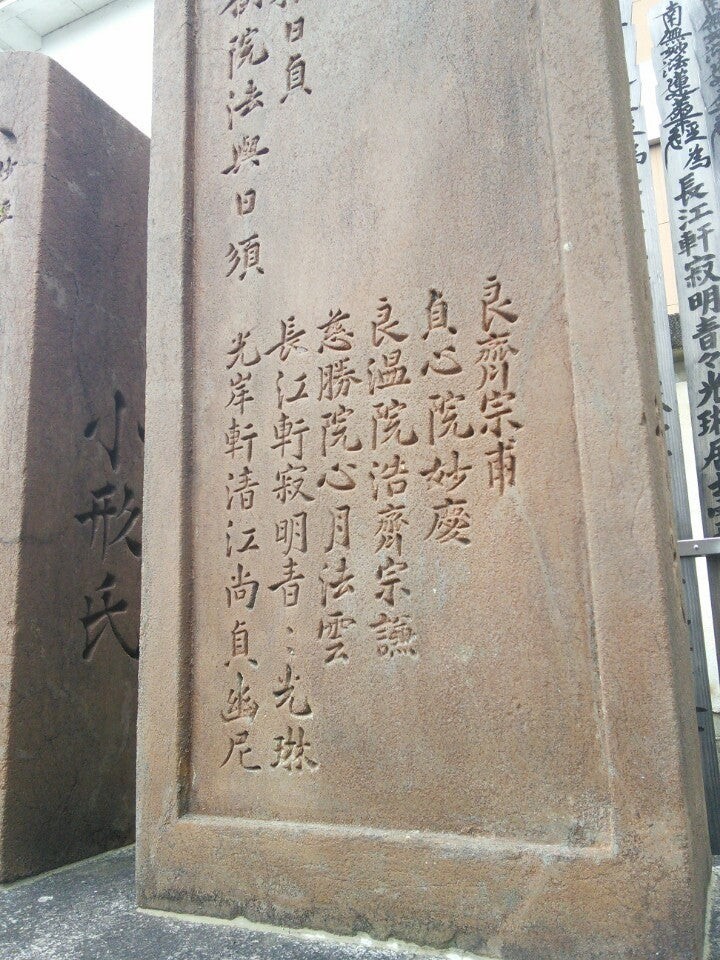 南無妙法蓮華経為長江軒寂明青々光琳居士
良齊宗甫
貞心院妙慶
良温院浩齊宗謙
慈勝院心月法雲
日貞
長江軒寂明青〻光琳
院法與日須
光岸軒清江尚貞幽尼
小形氏
妙